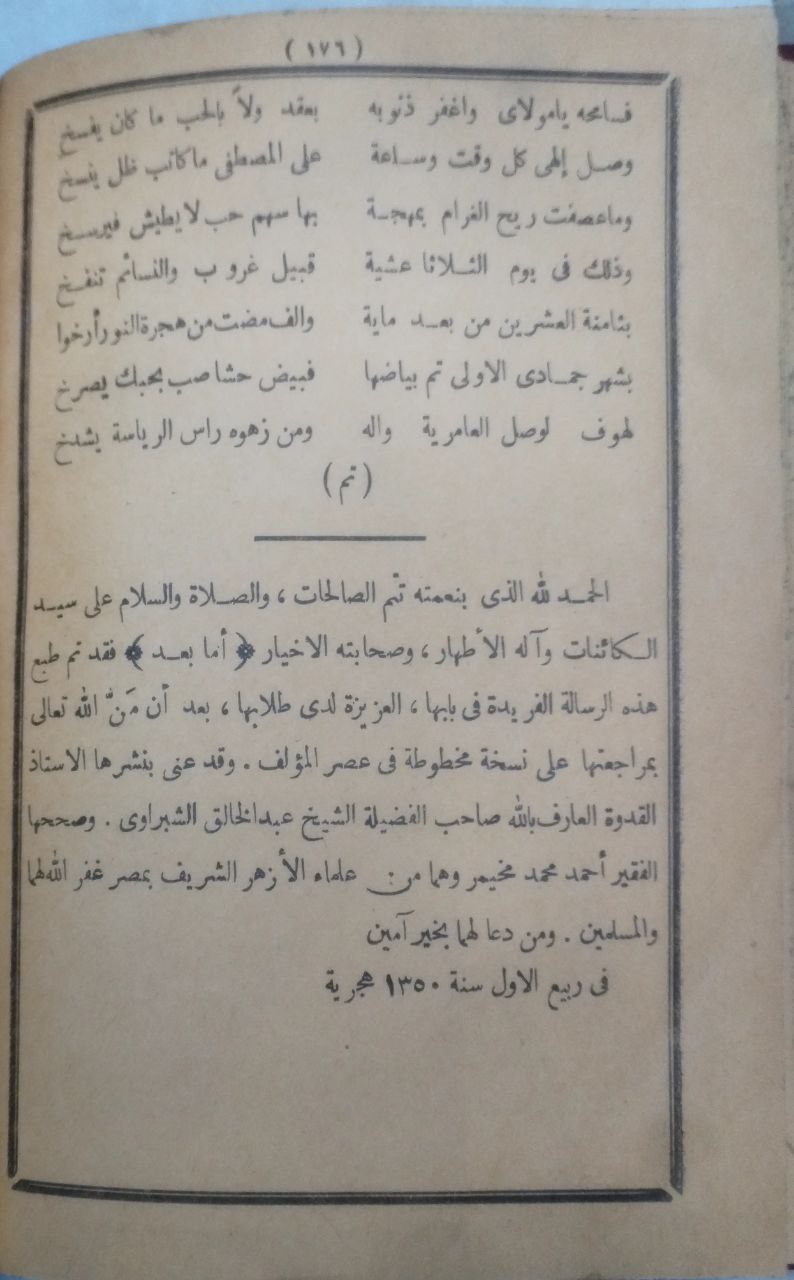 (١٧٦)
فسامحه يامولاى واغفر ذنوبه بعقد ولاً بالحب ما كان يفسخ
وصل إلهى كل وقت وساعة على المصطفى ما كاتب ظل ينسخ
وماعصفت ريح الغرام بمهجة بها سهم حب لا يطيش فيرسخ
وذلك فى يوم الثلاثا عشية قبيل غروب والنسائم تنفخ
بثامنة العشرين من بعد ماية والف مضت من هجرة النور أرخوا
بشهر جمادى الاولى تم بياضها فبيض حشا صب بحبك يصرخ
لهوف لوصل العامرية واله ومن زهوه راس الرياسة يشدخ
(تم)
الحمد لله الذى بنعمته تتم الصالحات ، والصلاة والسلام على سيد
الكائنات وآله الأطهار ، وصحابته الاخيار ﴿ أما بعد ﴾ فقد تم طبع
هذه الرسالة الفريدة فى بابها ، العزيزة لدى طلابها ، بعد أن مَنَّ الله تعالى
بمراجعتها على نسخة مخطوطة فى عصر المؤلف . وقد عنى بنشرها الاستاذ
القدوة العارف بالله صاحب الفضيلة الشيخ عبدالخالق الشبراوى . وصححها
الفقير أحمد محمد مخيمر وهما من : علماء الأزهر الشريف بمصر غفر الله لهما
والمسلمين . ومن دعا لهما بخير آمين
فى ربيع الاول سنة ١٣٥٠ هجرية